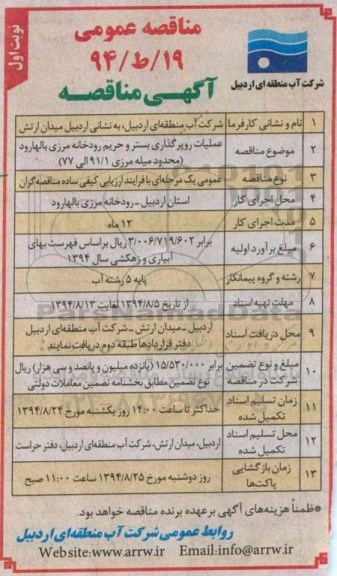 نوبت اول
مناقصه عمومی
۱۹/ط/۹۴
آگهی مناقصه
شرکت آب منطقه ای اردبیل
۱ نام و نشانی کارفرما شرکت آب منطقه‌ای اردبیل، به نشانی اردبیل میدان ارتش
۲ موضوع مناقصه عملیات روپرگذاری بستر و حریم رودخانه مرزی بالهارود
(محدود میله مرزی ۹۱/۱ الی ۷۷)
۳ نوع مناقصه عمومی یک مرحله‌ای با فرایند ارزیابی کیفی ساده مناقصه گران
۴ محل اجرای کار استان اردبیل - رودخانه مرزی بالهارود
۵ مدت اجرای کار ۱۲ ماه
۶ مبلغ برآورد اولیه برابر ۳/۰۰۶/۷۱۹/۶۰۲ ریال براساس فهرست بهای
آبیاری و زهکشی سال ۱۳۹۴
۷ رشته و گروه پیمانکار پایه ۵ رشته آب
۸ مهلت تهیه اسناد از تاریخ ۱۳۹۴/۸/۵ لغایت ۱۳۹۴/۸/۱۳
۹ محل دریافت اسناد اردبیل - میدان ارتش - شرکت آب منطقه‌ای اردبیل
دفتر قراردادها طبقه دوم دریافت نمایند
۱۰ مبلغ و نوع تضمین شرکت در مناقصه برابر ۱۵/۵۳۰/۰۰۰ (پانزده میلیون و پانصد و سی هزار) ریال
نوع تضمین مطابق بخشنامه تضمین معاملات دولتی
۱۱ زمان تسلیم اسناد تکمیل شده حداکثر تا ساعت ۱۴:۰۰ روز یکشنبه مورخ ۱۳۹۴/۸/۲۴
۱۲ محل تسلیم اسناد تکمیل شده اردبیل، میدان ارتش، شرکت آب منطقه‌ای اردبیل، دفتر حراست
۱۳ زمان بازگشایی پاکت‌ها روز دوشنبه مورخ ۱۳۹۴/۸/۲۵ ساعت ۱۱:۰۰ صبح
* ظمناً هزینه‌های آگهی برعهده برنده مناقصه خواهد بود.
روابط عمومی شرکت آب منطقه ای اردبیل
Website:www.arrw.ir Email:info@arrw.ir